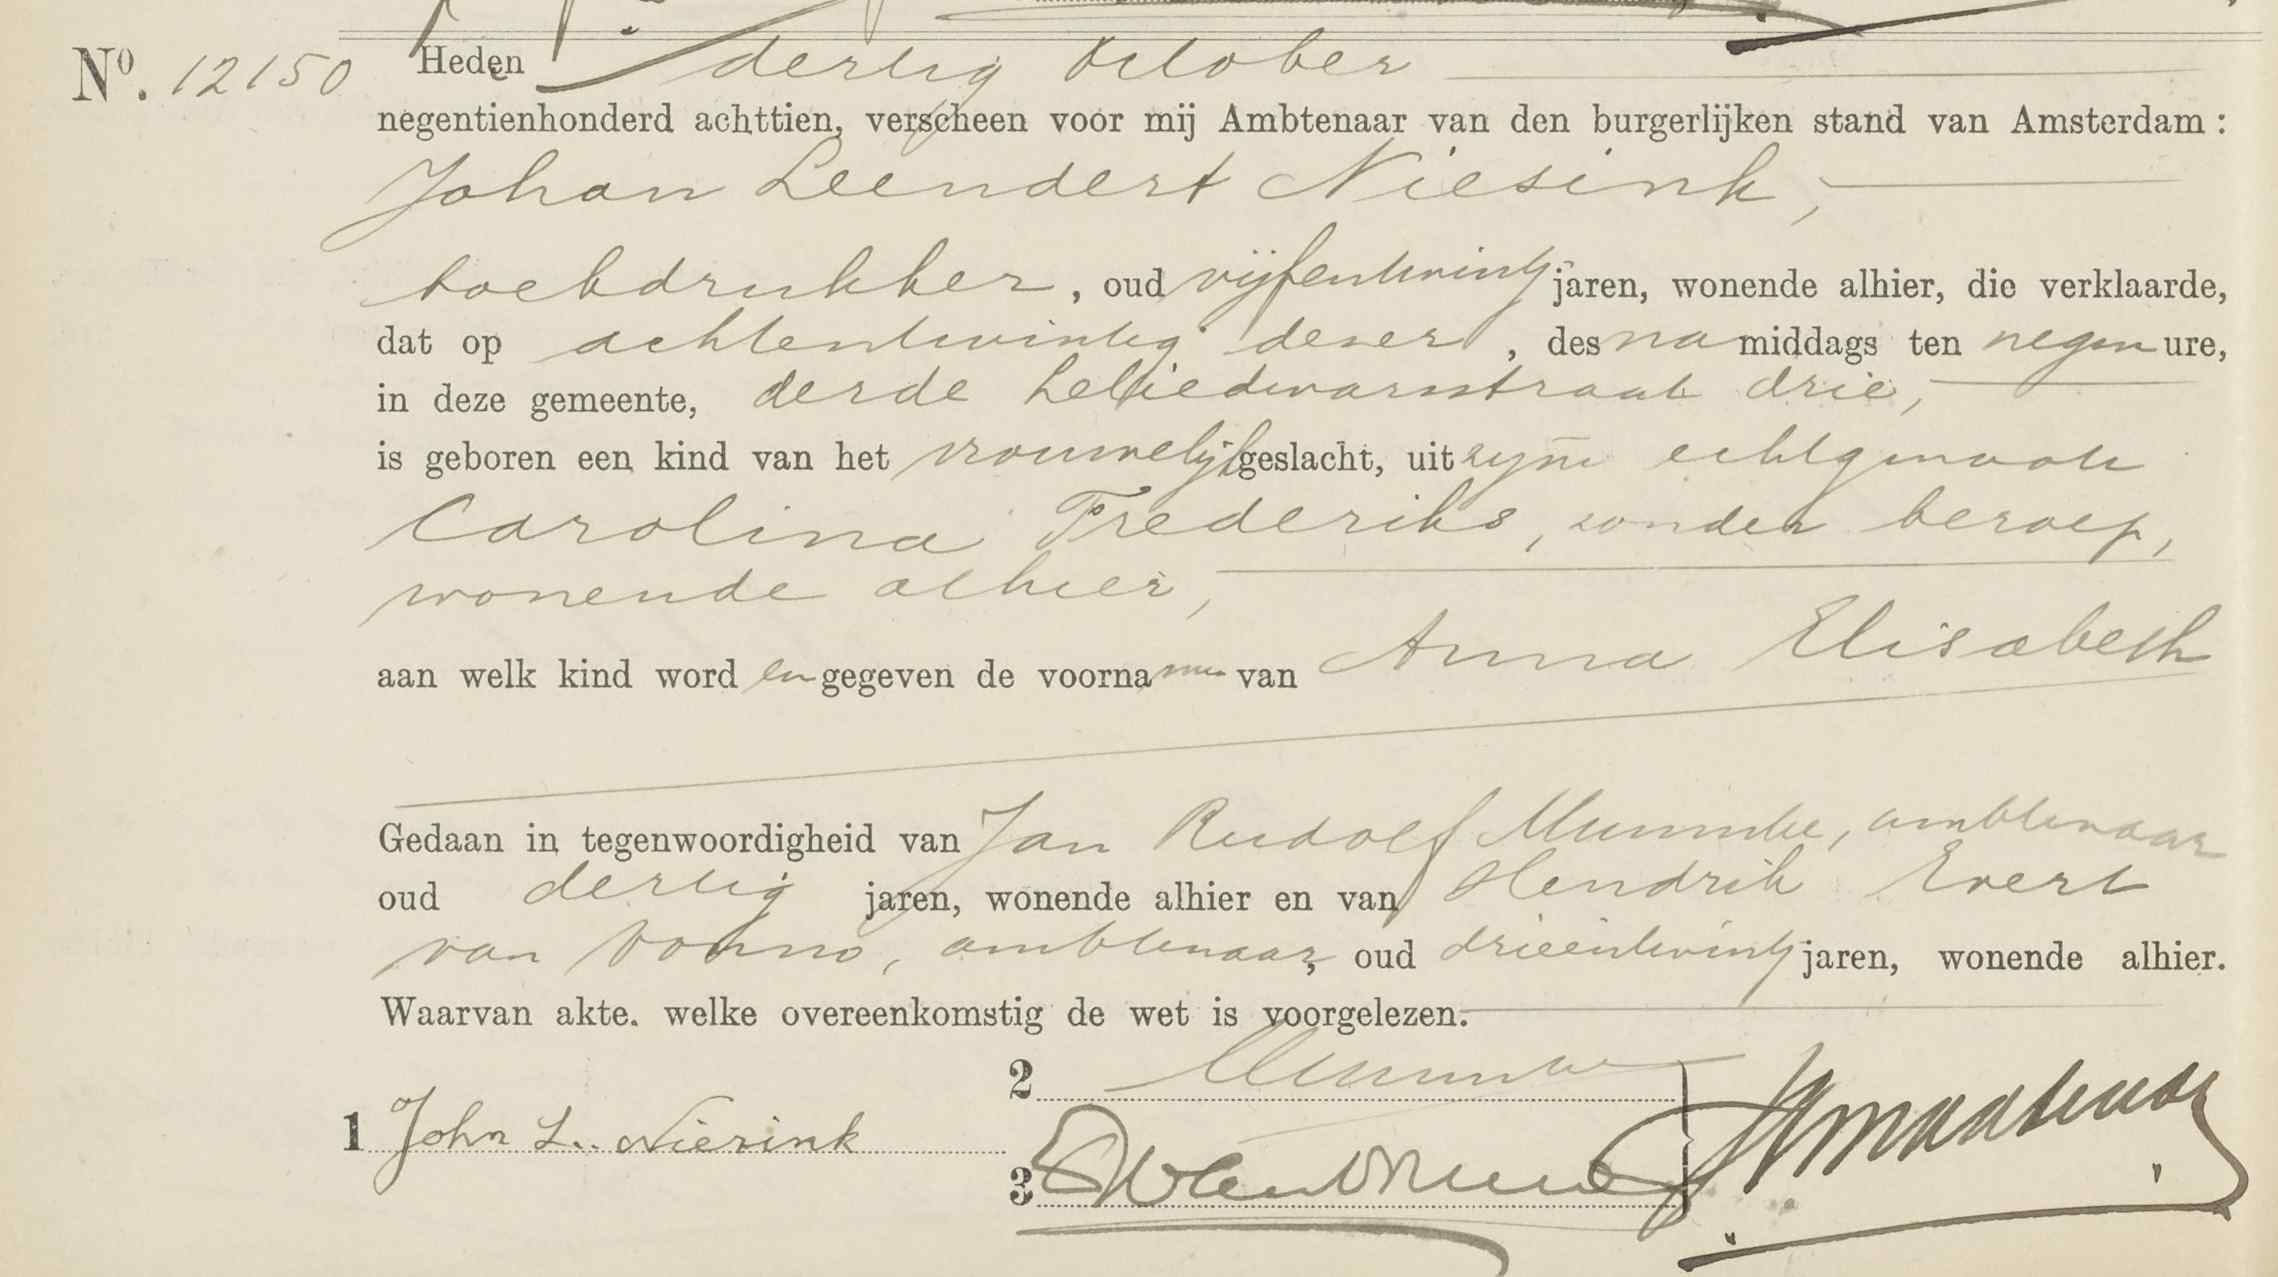 No. 12150 Heden dertig October
negentienhonderd achttien, verscheen voor mij Ambtenaar van den burgerlijken stand van Amsterdam:
Johan Leendert Niesink,
boekdrukker, oud vijfentwintig jaren, wonende alhier, die verklaarde,
dat op achtentwintig dezer, des namiddags ten negen ure,
in deze gemeente, derde Leliedwarsstraat drie,
is geboren een kind van het vrouwelijk geslacht, uit zijne echtgenoote
Carolina Frederiks, zonder beroep,
wonende alhier,
aan welk kind worden gegeven de voornamen van Anna Elisabeth
Gedaan in tegenwoordigheid van Jan Rudolf ambtenaar
oud dertig jaren, wonende alhier en van Hendrik Evert
van ambtenaar, oud drieëntwintig jaren, wonende alhier.
Waarvan akte. welke overeenkomstig de wet is voorgelezen.
2
1 John L. Niesink
3